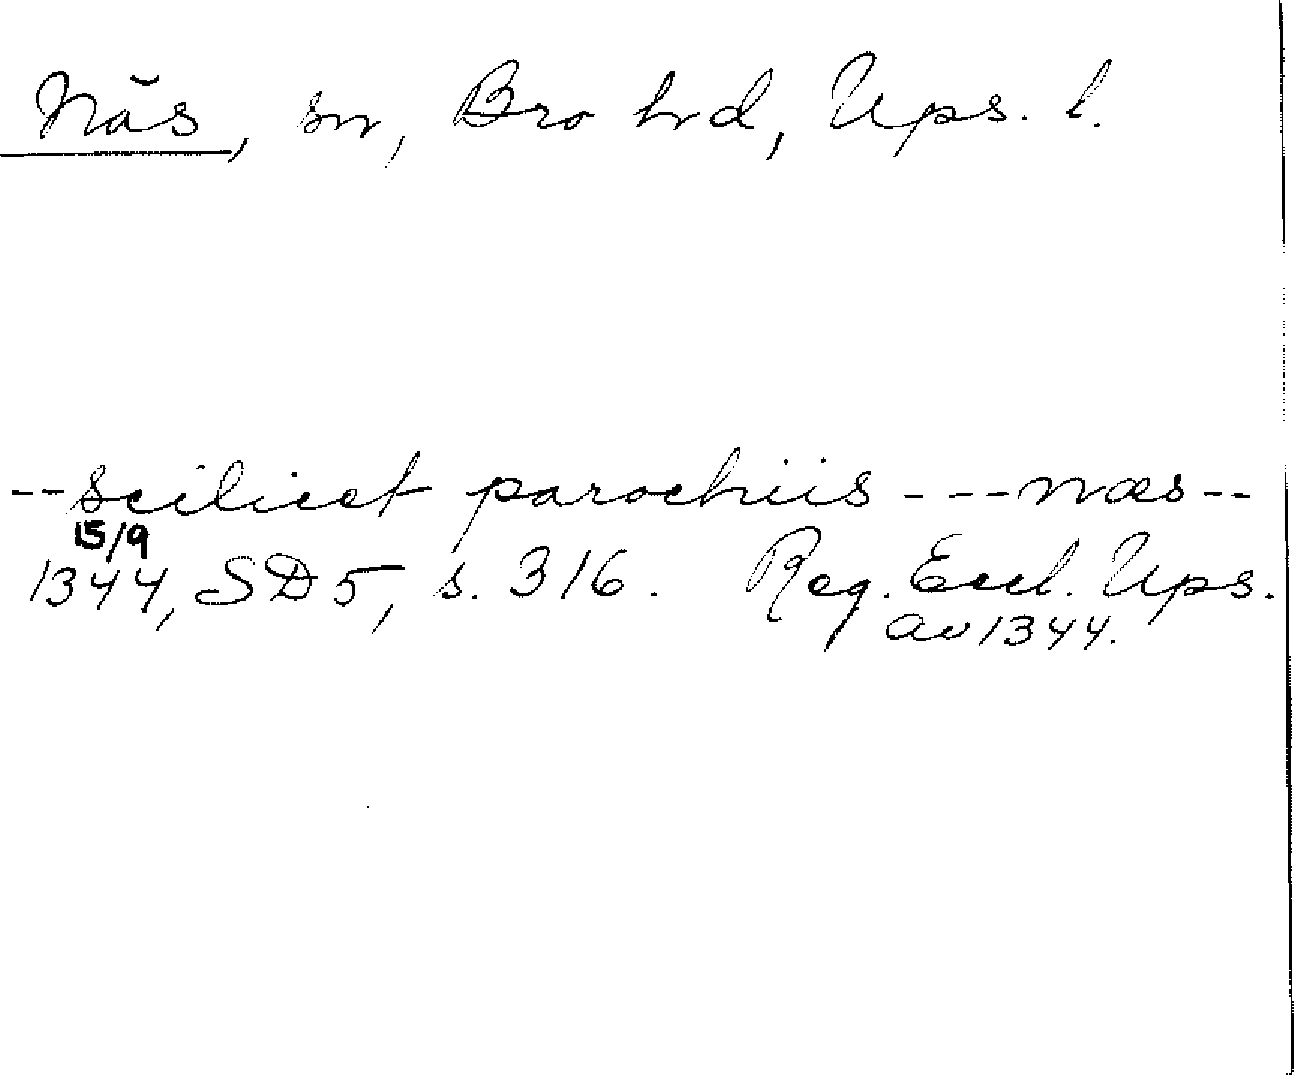 Näs, sn, Bro hd, Ups. l.
--scilicet parochiis ---næs--
15/9
1344, SD 5, s. 316. Reg. Eccl. Ups.
av 1344.